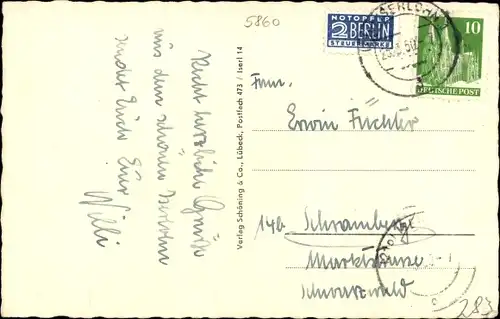 5860
Recht herzliche Grüße
aus dem schönen Iserlohn
sendet Euch Euer
Willi
Verlag Schöning & Co., Lübeck, Postfach 473 / Iserl 14
NOTOPFER
2 BERLIN
STEUERMARKE
ISERLOHN
10
DEUTSCHE POST
Fam.
Erwin Füchter
14b Schramberg
Schwarzwald
283